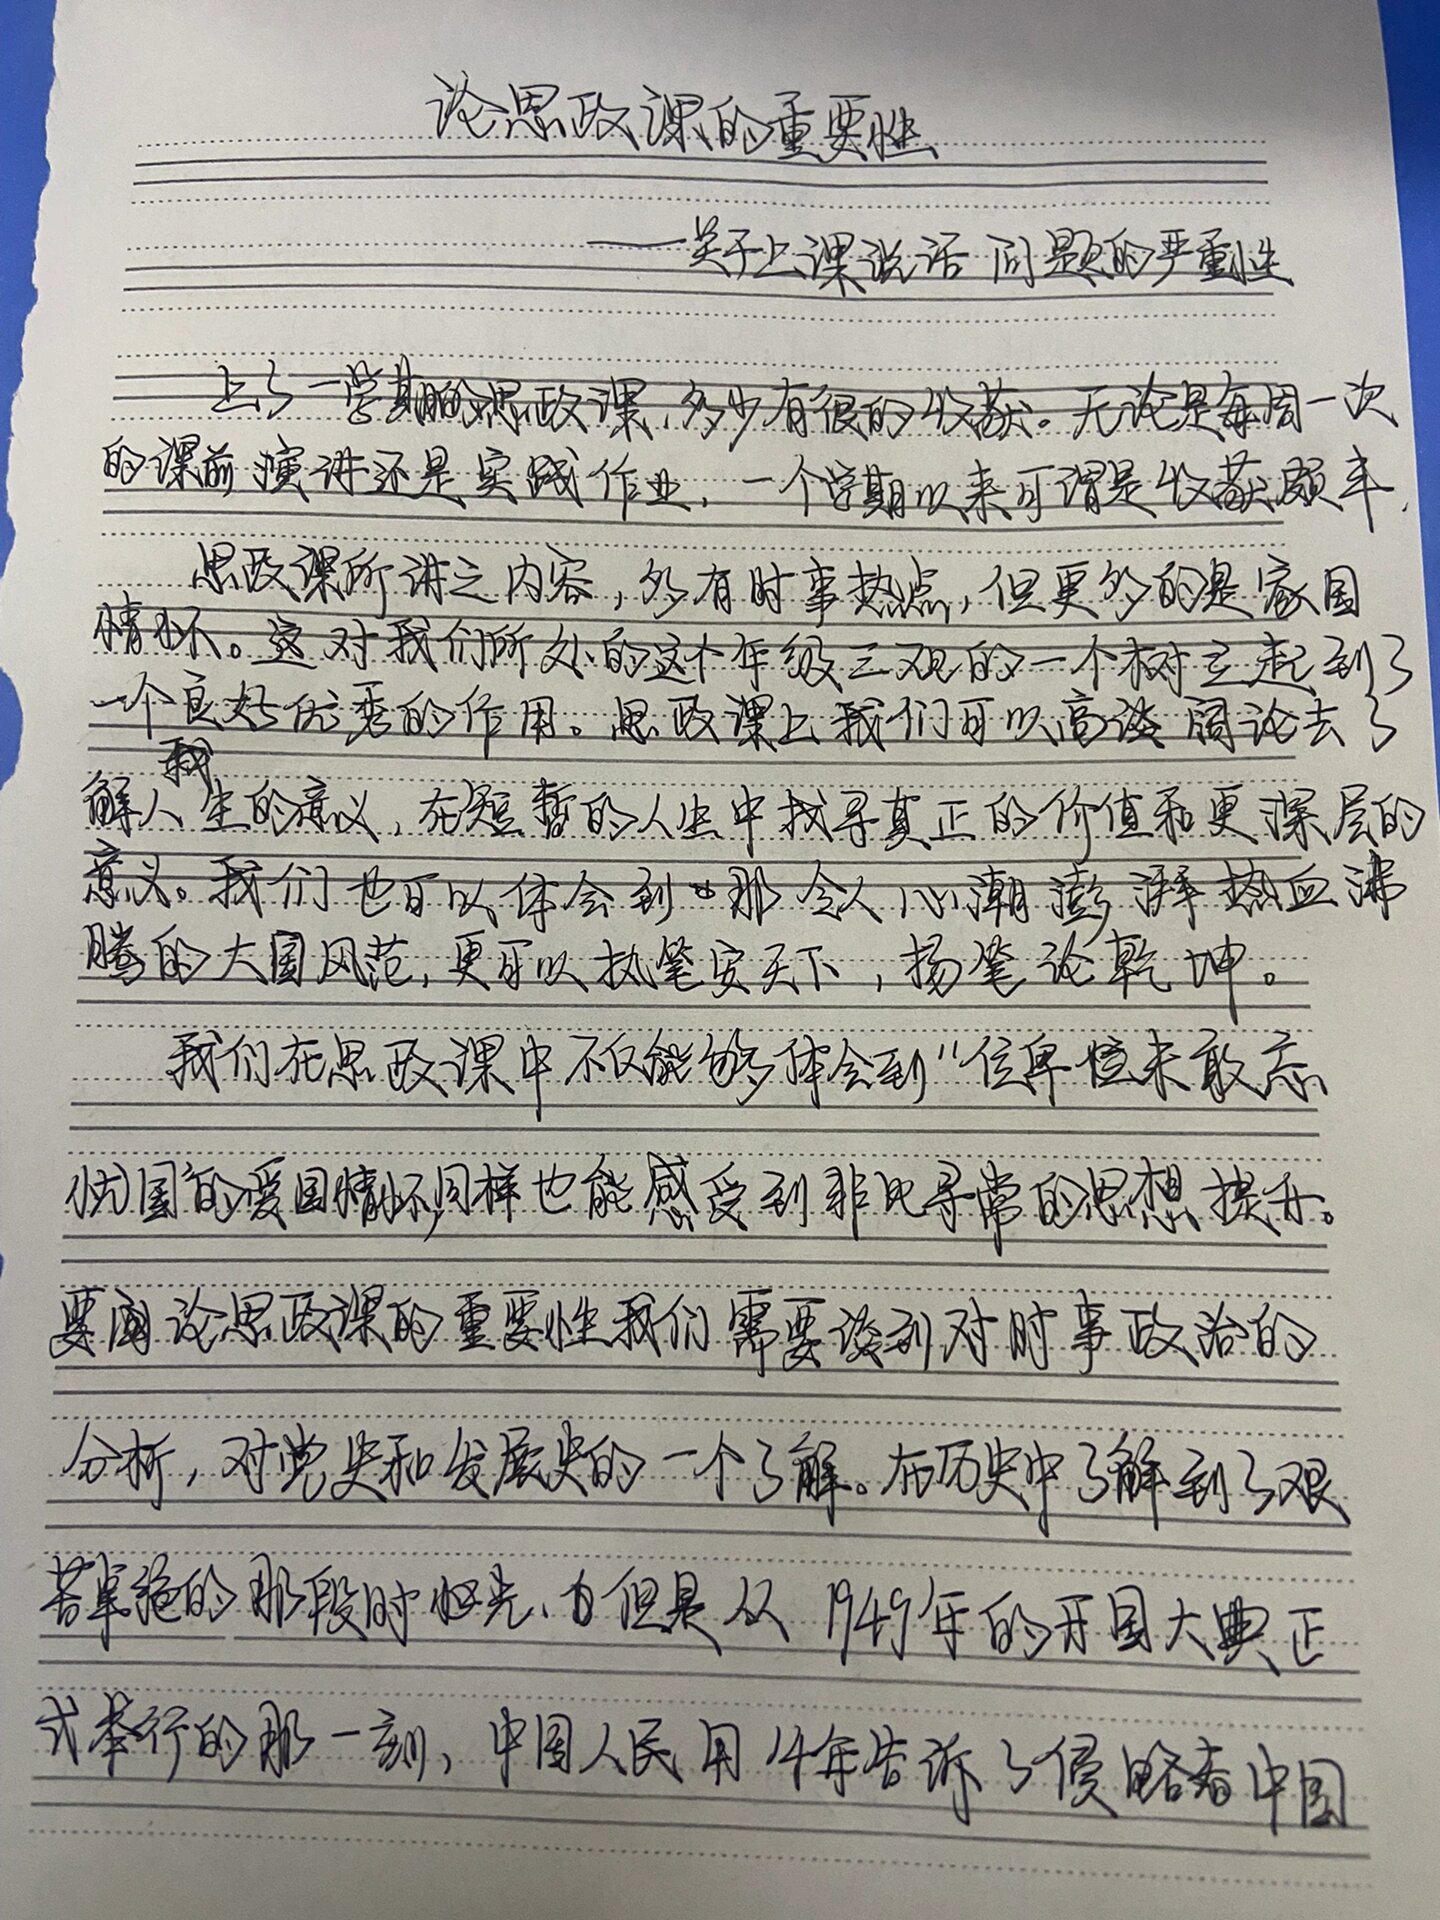 论思政课的重要性
——关于上课说话问题的严重性
上了一学期的思政课，多少有很的收获。无论是每周一次
的课前演讲还是实践作业，一个学期以来可谓是收获颇丰，
思政课所讲之内容，多有时事热点，但更多的是家国
情怀。这对我们所处的这个年级三观的一个树立起到了
一个良好优秀的作用。思政课上我们可以高谈阔论去了
解人我生的意义，在短暂的人生中找寻真正的价值和更深层的
意义。我们也可以体会到那令人心潮澎湃热血沸
腾的大国风范，更可以执笔安天下，扬笔论乾坤。
我们在思政课中不仅能够体会到“位卑惶未敢忘
忧国”的爱国情怀，同样也能感受到非比寻常的思想提升。
要阐论思政课的重要性我们需要谈到对时事政治的
分析，对党史和发展史的一个了解。在历史中了解到了艰
苦卓绝的那段时光，但是从1949年的开国大典正
式举行的那一刻，中国人民用14年告诉了侵略者中国